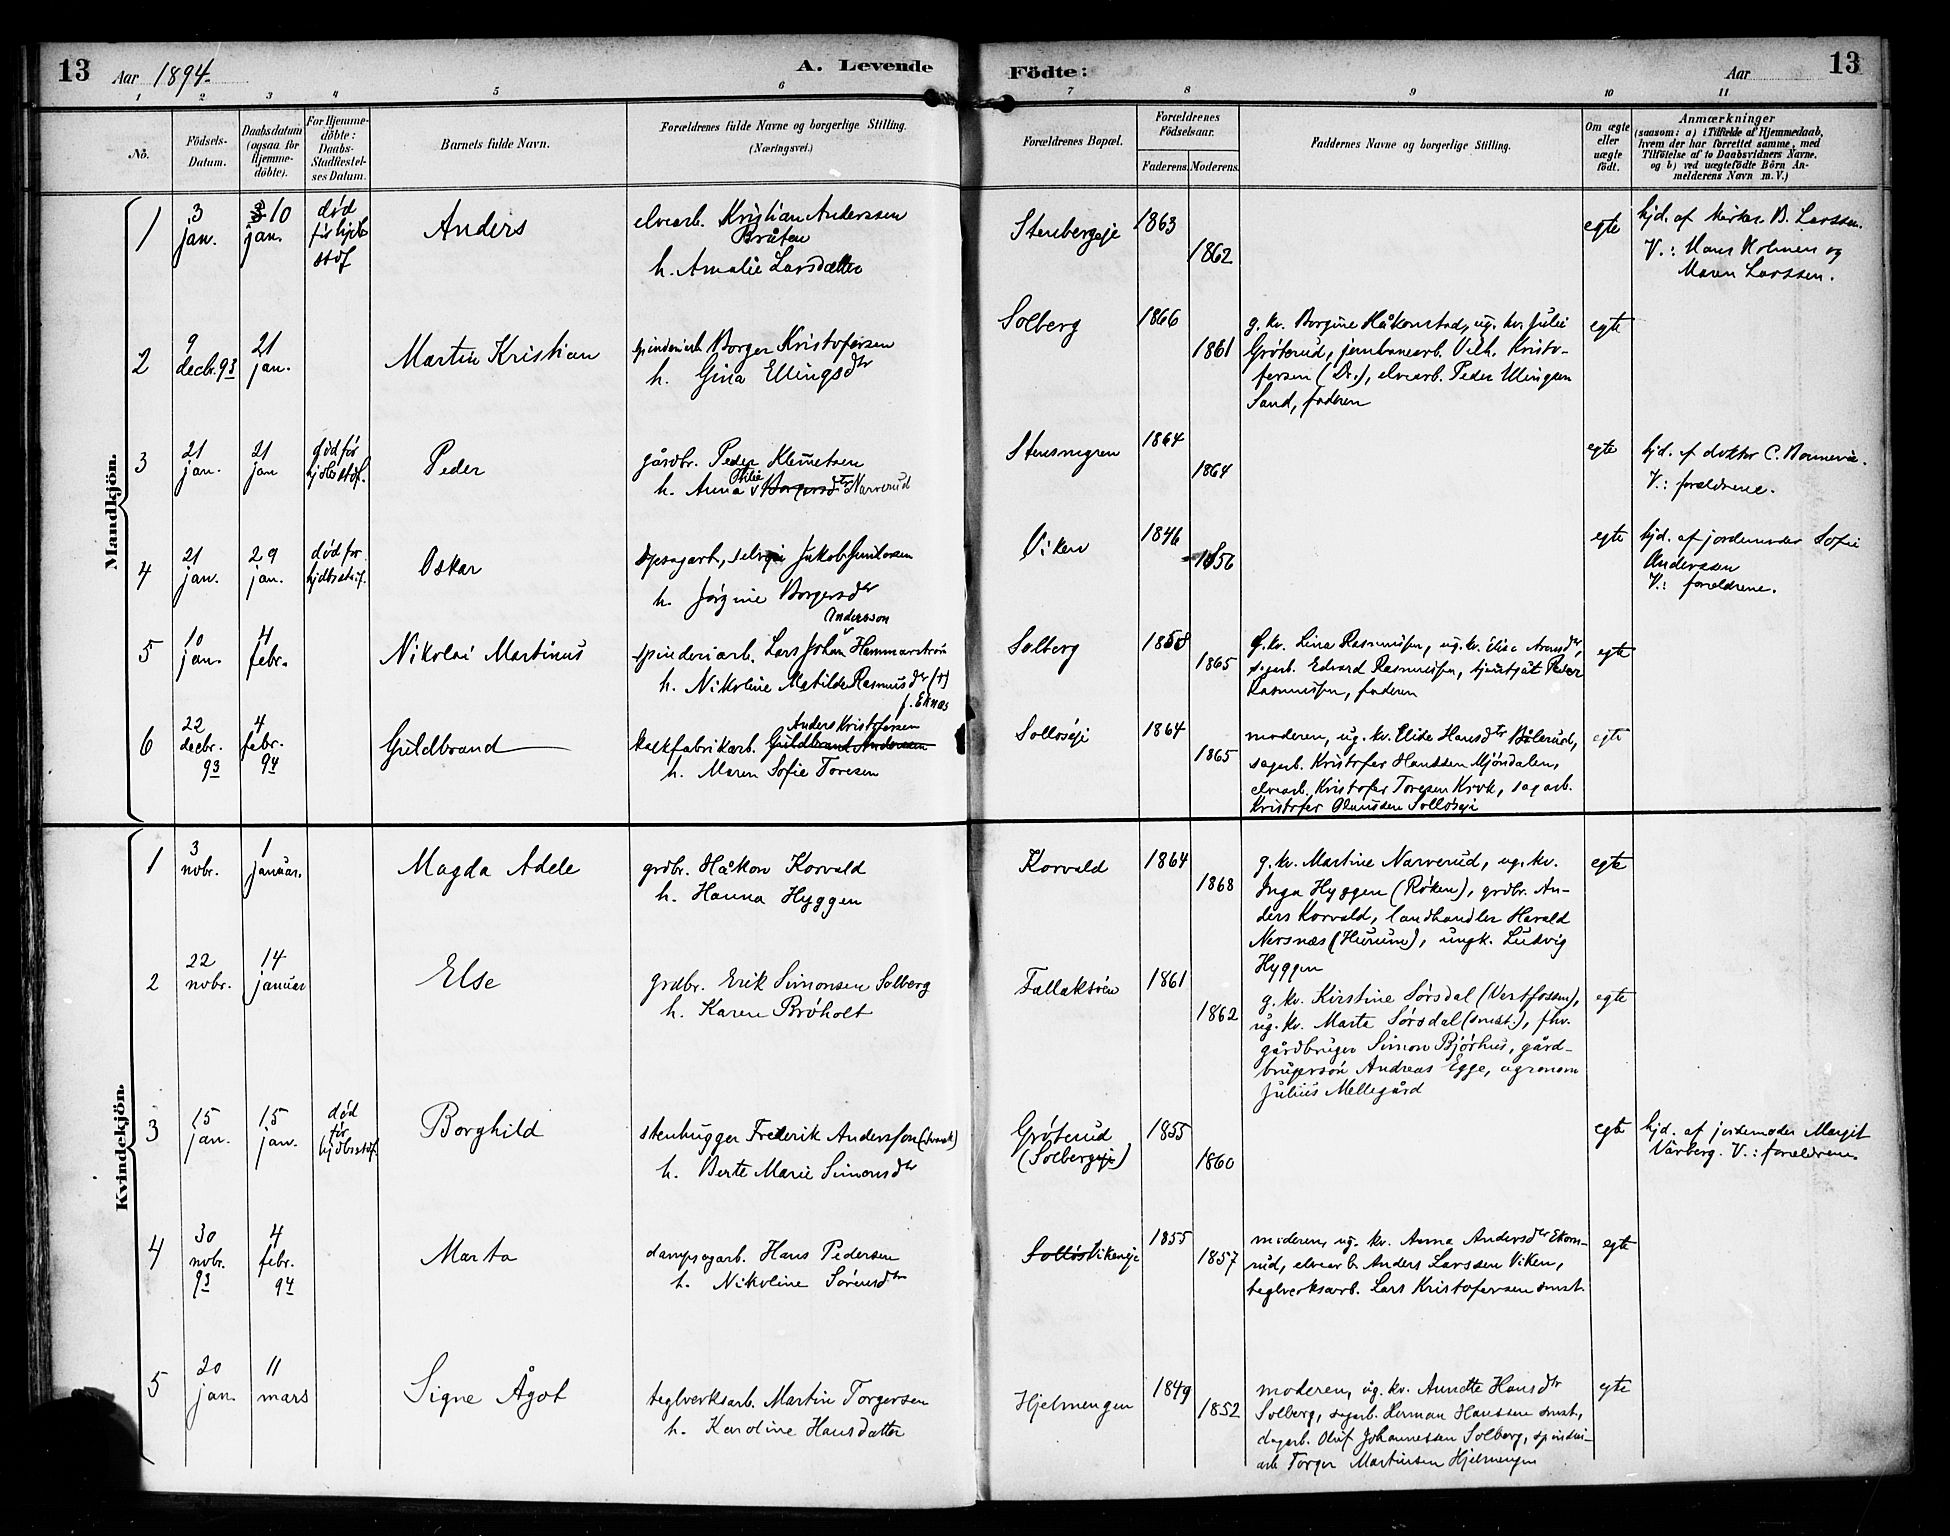 13
Aar 1894.
A. Levende
Födte:
Aar
13
1 2 3 4 5 6 7 8 9 10 11
No.
Födsels-
Datum.
Daabsdatum
(ogsaa for
Hjemme-
döbte).
For Hjemme-
döbte:
Daabs-
Stadfæstel-
ses Datum.
Barnets fulde Navn.
Forældrenes fulde Navne og borgerlige Stilling.
(Næringsvei.)
Forældrenes Bopæl.
Forældrenes
Födselsaar.
Faderens. Moderens.
Faddernes Navne og borgerlige Stilling.
Om ægte
eller
uægte
födt.
Anmærkninger
(saasom: a) i Tilfælde af Hjemmedaab,
hvem der har forrettet samme, med
Tilföielse af to Daabsvidners Navne,
og b) ved uægtefödte Börn An-
melderens Navn m. V.)
Mandkjön.
1
3
jan.
10
jan.
død
før hjdb
stdf
Anders
elvearb. Kristian Anderssen
Bråten
h. Amalie Larsdatter
Stenbergeje
1863
1862
egte
hjd. af kirkes. B. Larssen.
V.: Hans Holmen og
Maren Larssen.
2
9
decbr. 93
21
jan.
Martin Kristian
spinderiarb. Borger Kristofersen
h. Gina Ellingsdtr
Solberg
1866
1861
g. kv. Borgine Håkonstad, ug. kv. Julie
Grøterud, jernbanearb. Vilh. Kristo-
fersen (Dr.), elvearb. Peder Ellingsen
Sand, faderen
egte
3
21
jan.
21
jan
død før
hjdbs stdf.
Peder
gårdbr. Peder Klemetsen
h. Anna Otilie Borgersdtr Narverud
Stensmyren
1864
1864
egte
hjd. af doktor C. Bonnevie.
V.: forældrene.
4
21
jan.
29
jan.
død for
hjdbsstdf.
Oskar
dpsagarb., selvej Jakob Gundersen
h. Jørgine Borgersdtr
Viken
1846
1856
egte
hjd. af jordemoder Sofie
Anderssen
V.: forældrene.
5
10
jan.
4
febr.
Nikolai Martinus
Andersson
spinderiarb. Lars Johan Hammarström
h. Nikoline Matilde Rasmusdtr (†)
f. Eknæs
Solberg
1858
1865
g. kv. Lina Rasmussen, ug. kv. Elise Arensdtr,
sagarb. Edvard Rasmussen, Peder
Rasmussen, faderen
egte
6
22
decbr.
93
4
febr.
94
Guldbrand
Anders Kristofersen
kalkfabrikarb. Guldbrand Andersen
h. Maren Sofie Toresen
Solloseje
1864
1865
moderen, ug. kv. Elise Hansdtr Bølerud,
sagarb. Kristofer Hanssen Mjöndalen,
elvearb. Kristofer Toresen Krok, sagarb.
Kristofer Olaussen Solloseje
egte
Kvindekjön.
1
3
nobr.
1
januar.
Magda Adele
grdbr. Håkon Korvald
h. Hanna Hyggen
Korvald
1864
1868
g. kv. Martine Narverud, ug. kv.
Inga Hyggen (Røken), grdbr. An-
ders Korvald, landhandler Harald
Nersnæs (Hurum), ungk. Ludvig
Hyggen
egte
2
22
nobr.
14
januar
Else
grdbr. Erik Simonsen Solberg
h. Karen Brøholt
Fallaksøen
1861
1862
g. kv. Kirstine Sørsdal (Vestfossen),
ug. kv. Marte Sørsdal (smst.), fhv.
gårdbruger Simon Bjørhus, gård-
brugersøn Andreas Egge, agronom
Julius Mellegård
egte
3
15
jan.
15
jan.
død
før
hjdbsstdf.
Borghild
stenhugger Frederik Andersson (svensk)
h. Berte Marie Simonsdtr
Grøterud
(Solbergeje)
1855
1860
egte
hjd. af jordemoder Margit
Vårberg. V.: forældrene.
4
30
nobr.
93
4
febr.
94
Marta
dampsagarb. Hans Pedersen
h. Nikoline Sørensdtr
Solløs Vikeneje
1855
1857
moderen, ug. kv. Anna Andersdtr Ekorn-
rud, elvearb Anders Larssen Viken,
teglverksarb. Lars Kristofersen smst.
egte
5
20
jan.
11
mars
Signe Ågot
teglverksarb. Martin Torgersen
h. Karoline Hansdatter
Hjelmengen
1849
1852
moderen, ug. kv. Annette Hansdtr
Solberg, sagarb. Herman Hanssen smst.,
dagarb. Oluf Johannessen Solberg, spinderi-
arb. Torger Martinsen Hjelmengen
egte